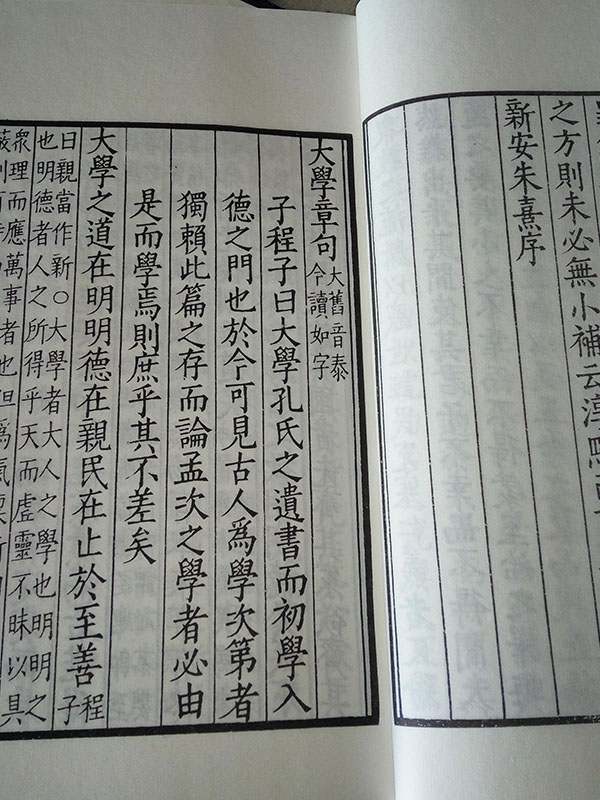 之方則未必無小補云淳熙
新安朱熹序
大學章句
大舊音泰
今讀如字
子程子曰大學孔氏之遺書而初學入
德之門也於今可見古人爲學次第者
獨賴此篇之存而論孟次之學者必由
是而學焉則庶乎其不差矣
大學之道在明明德在親民在止於至善
程
子
曰親當作新○大學者大人之學也明明之
也明德者人之所得乎天而虛靈不昧以具
衆理而應萬事者也但爲氣稟所